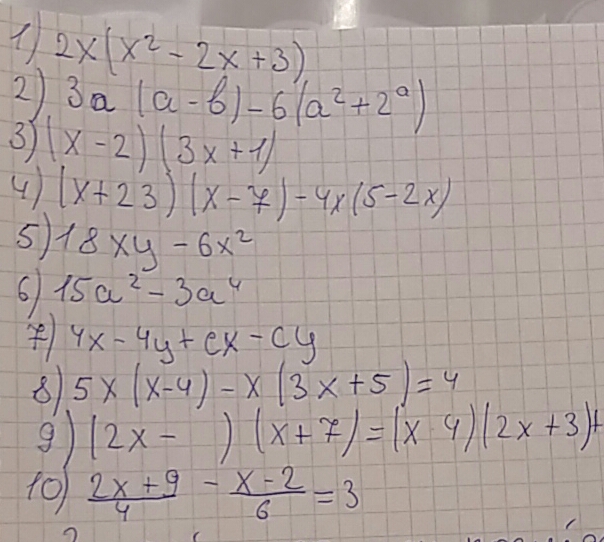 1) 2x(x² - 2x + 3)
2) 3a (a - b) - 6(a² + 2ᵃ)
3) (x - 2) (3x + 1)
4) (x + 23) (x - 7) - 4x(5 - 2x)
5) 18xy - 6x²
6) 15a² - 3a⁴
7) 4x - 4y + cx - cy
8) 5x (x - 4) - x (3x + 5) = 4
9) (2x -   ) (x + 7) = (x  4) (2x + 3) +
10) (2x + 9)/4 - (x - 2)/6 = 3